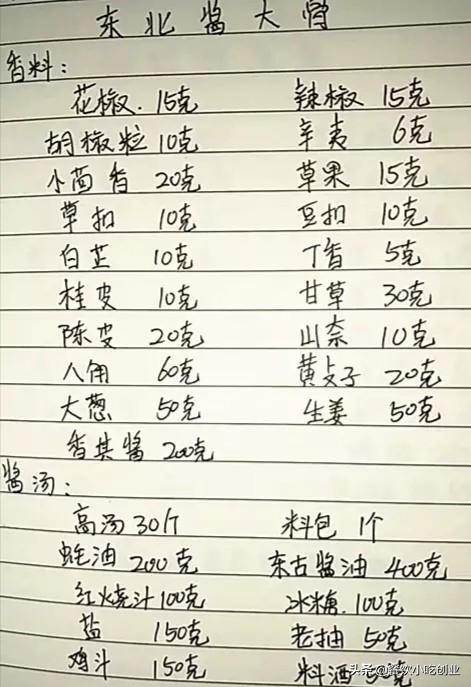 东北酱大骨
香料：
花椒.15克 辣椒 15克
胡椒粒 10克 辛夷 6克
小茴香 20克 草果 15克
草扣 10克 豆扣 10克
白芷 10克 丁香 5克
桂皮 10克 甘草 30克
陈皮 20克 山奈 10克
八角 60克 黄支子 20克
大葱 50克 生姜 50克
香其酱 200克
酱汤：
高汤 30斤 料包 1个
蚝油 200克 东古酱油 400克
红烧汁 100克 冰糖 100克
盐 150克 老抽 50克
鸡汁 150克 料酒
头条 @解欸小吃创业